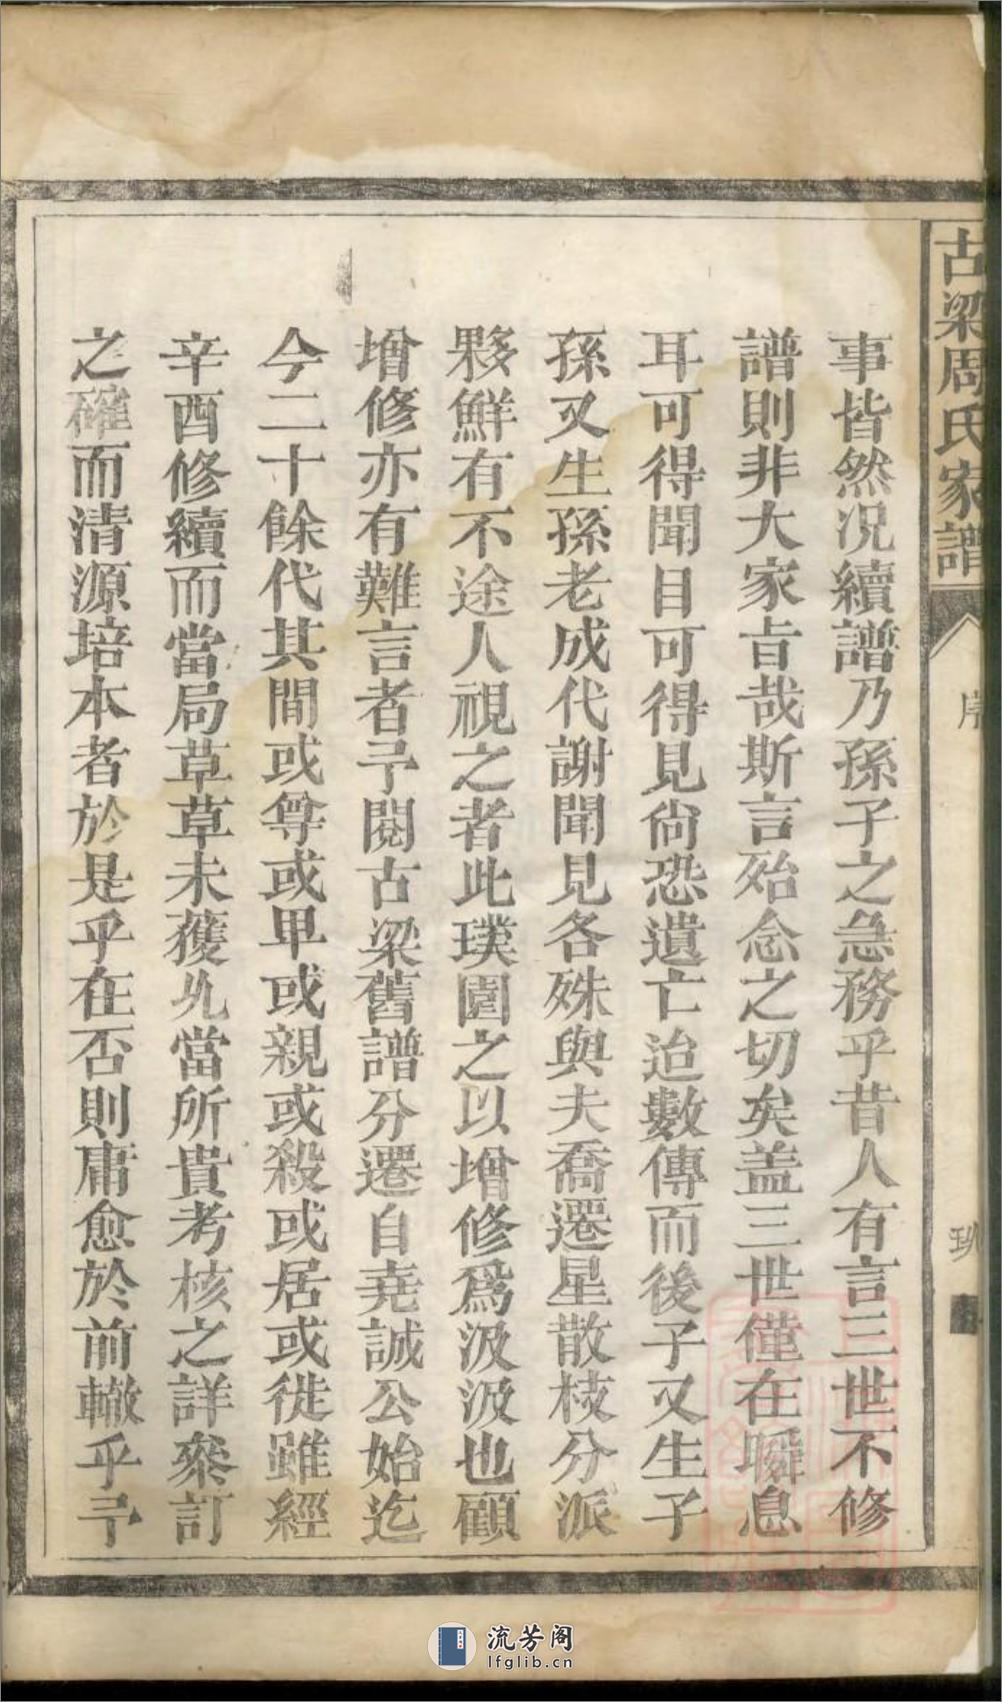 古梁周氏家譜
序
事皆然况續譜乃孫子之急務乎昔人有言三世不修
譜則非大家旨哉斯言殆念之切矣盖三世僅在瞬息
耳可得聞目可得見尙恐遺亡迨數傳而後子又生子
孫又生孫老成代謝聞見各殊與夫喬遷星散枝分派
夥鮮有不途人視之者此璞園之以增修爲汲汲也顧
增修亦有難言者予閱古梁舊譜分遷自堯誠公始迄
今二十餘代其間或尊或卑或親或殺或居或徙雖經
辛酉修續而當局草草未獲允當所貴考核之詳叅訂
之確而清源培本者於是乎在否則庸愈於前轍乎予
流芳阁
lfglib.cn